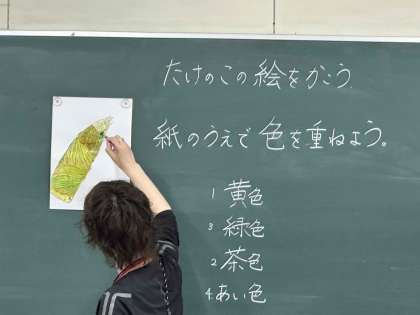 たけのこの絵をかこう
紙のうえで色を重ねよう。
1 黄色
3 緑色
2 茶色
4. あい色